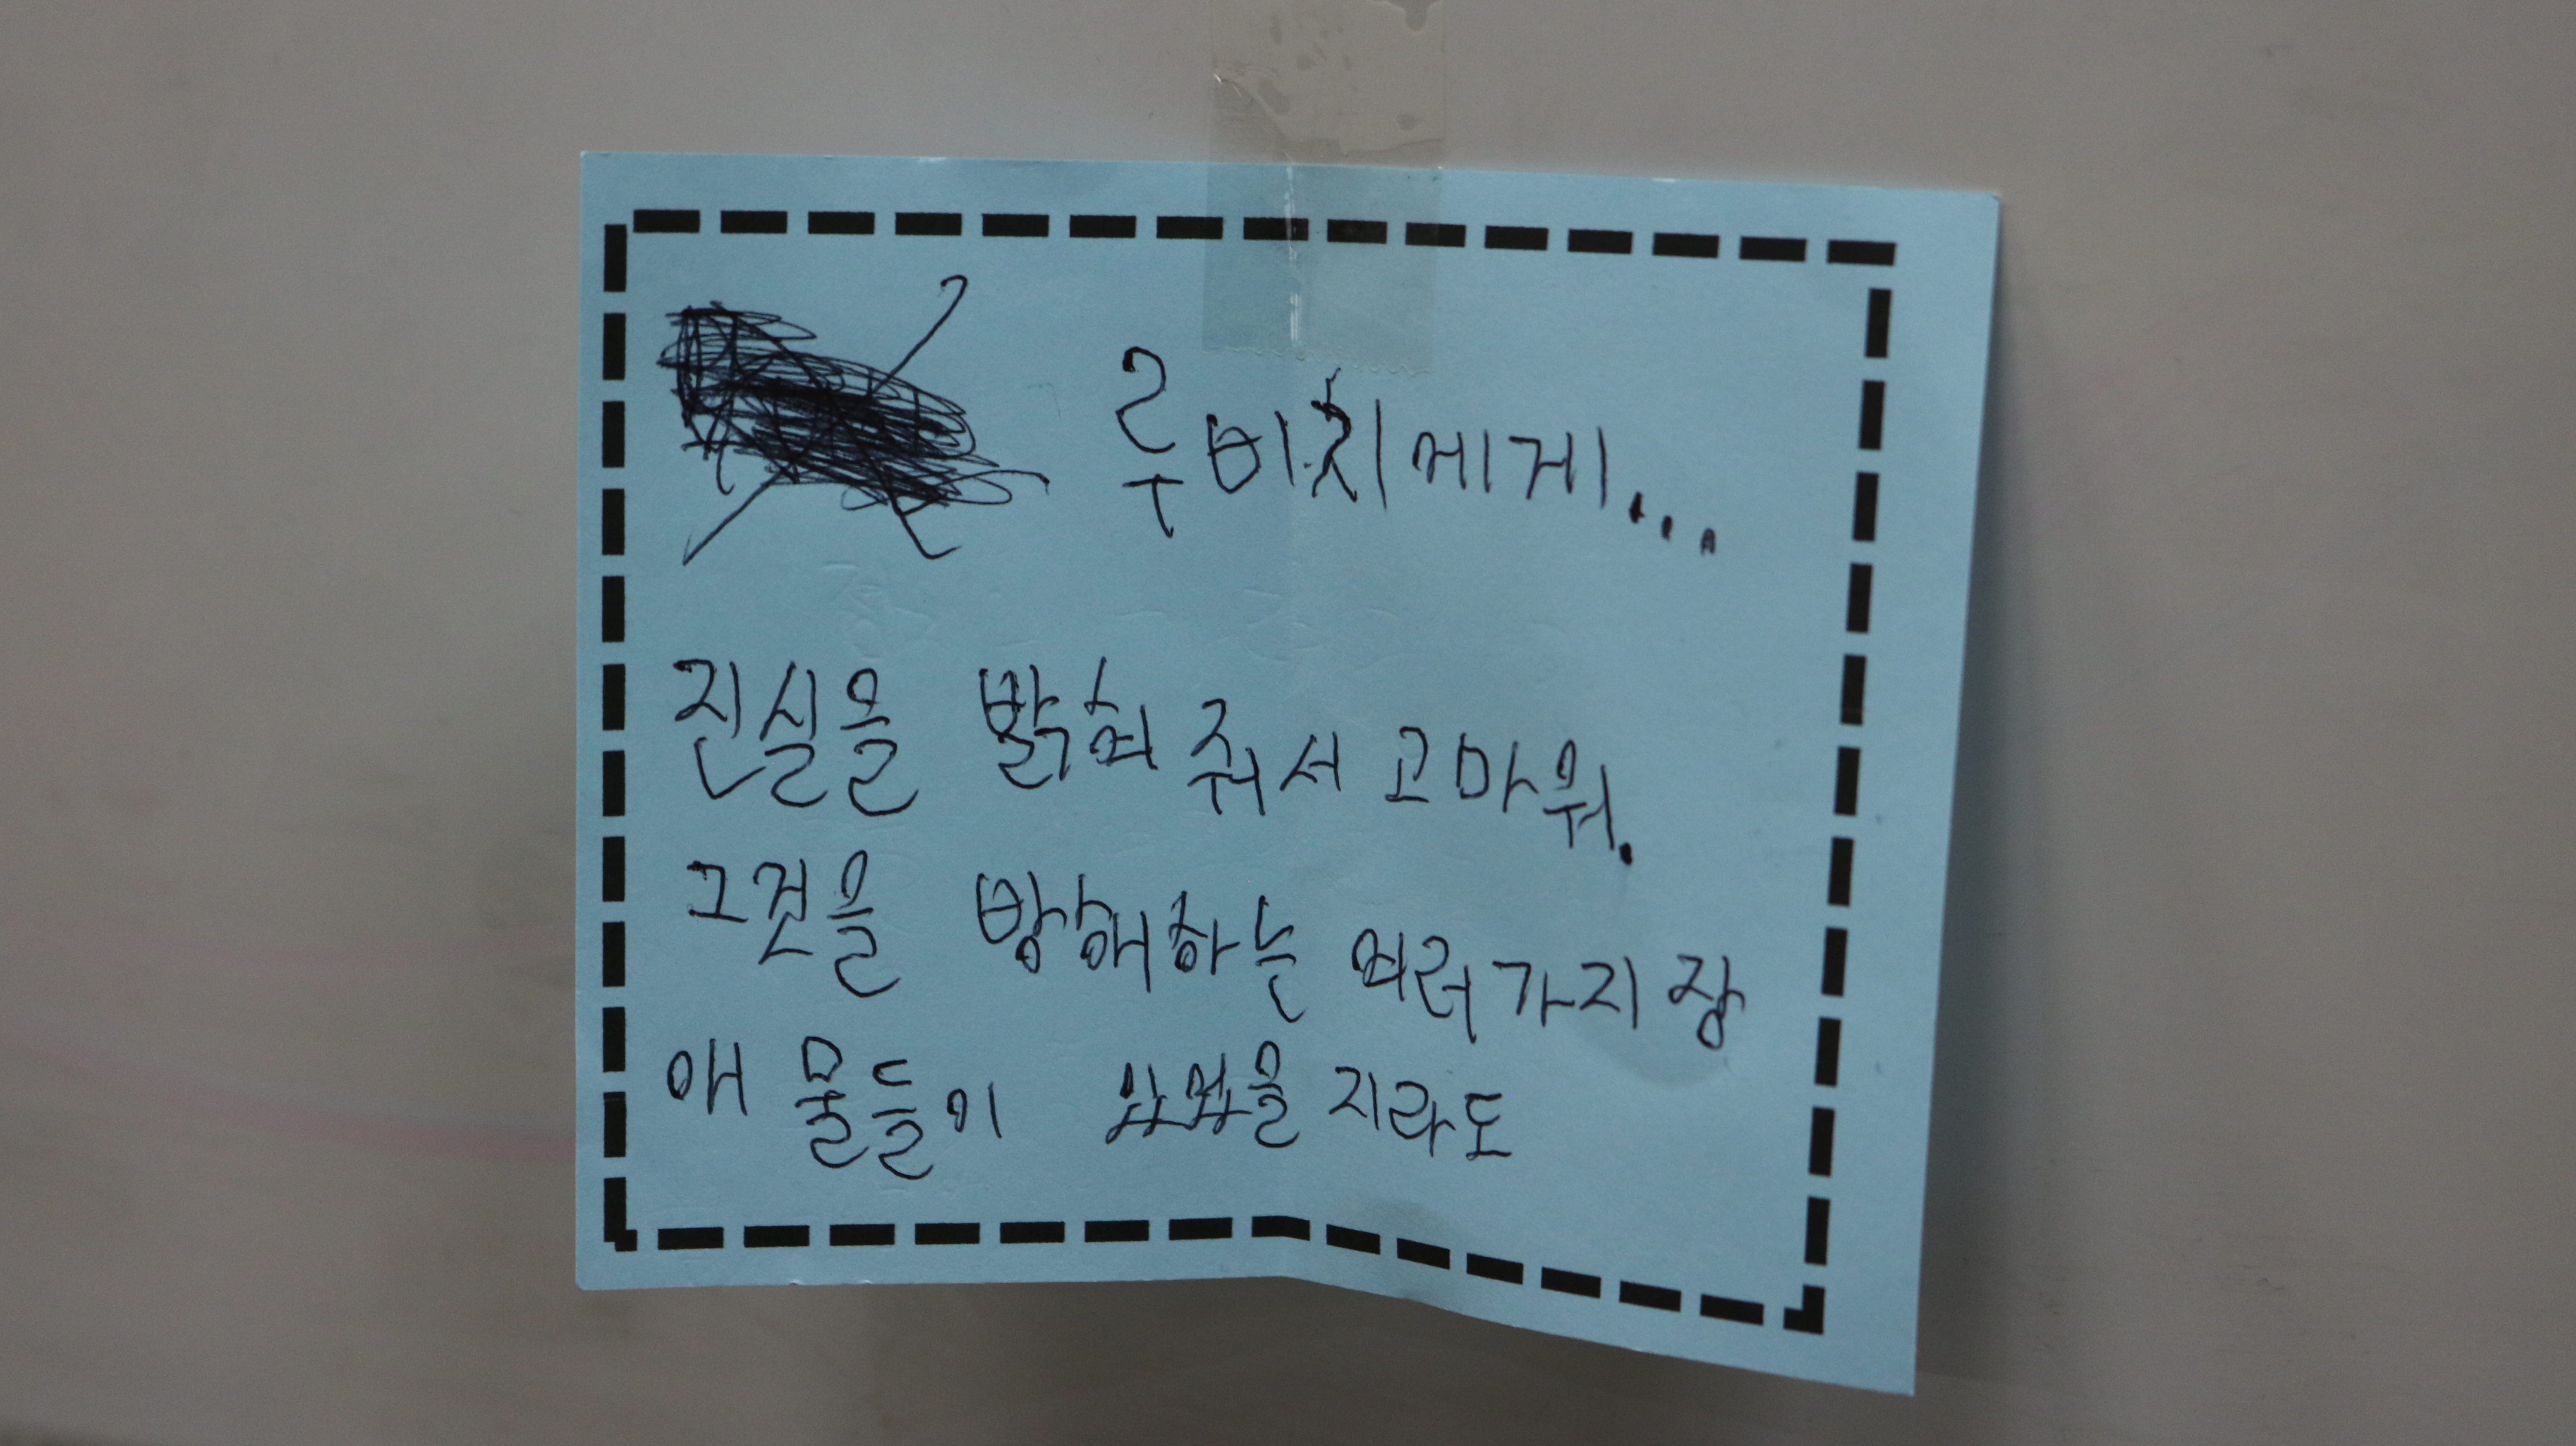 루비치에게...
진실을 밝혀 줘서 고마워.
그것을 방해하는 여러가지 장
애 물들이 있었을 지라도